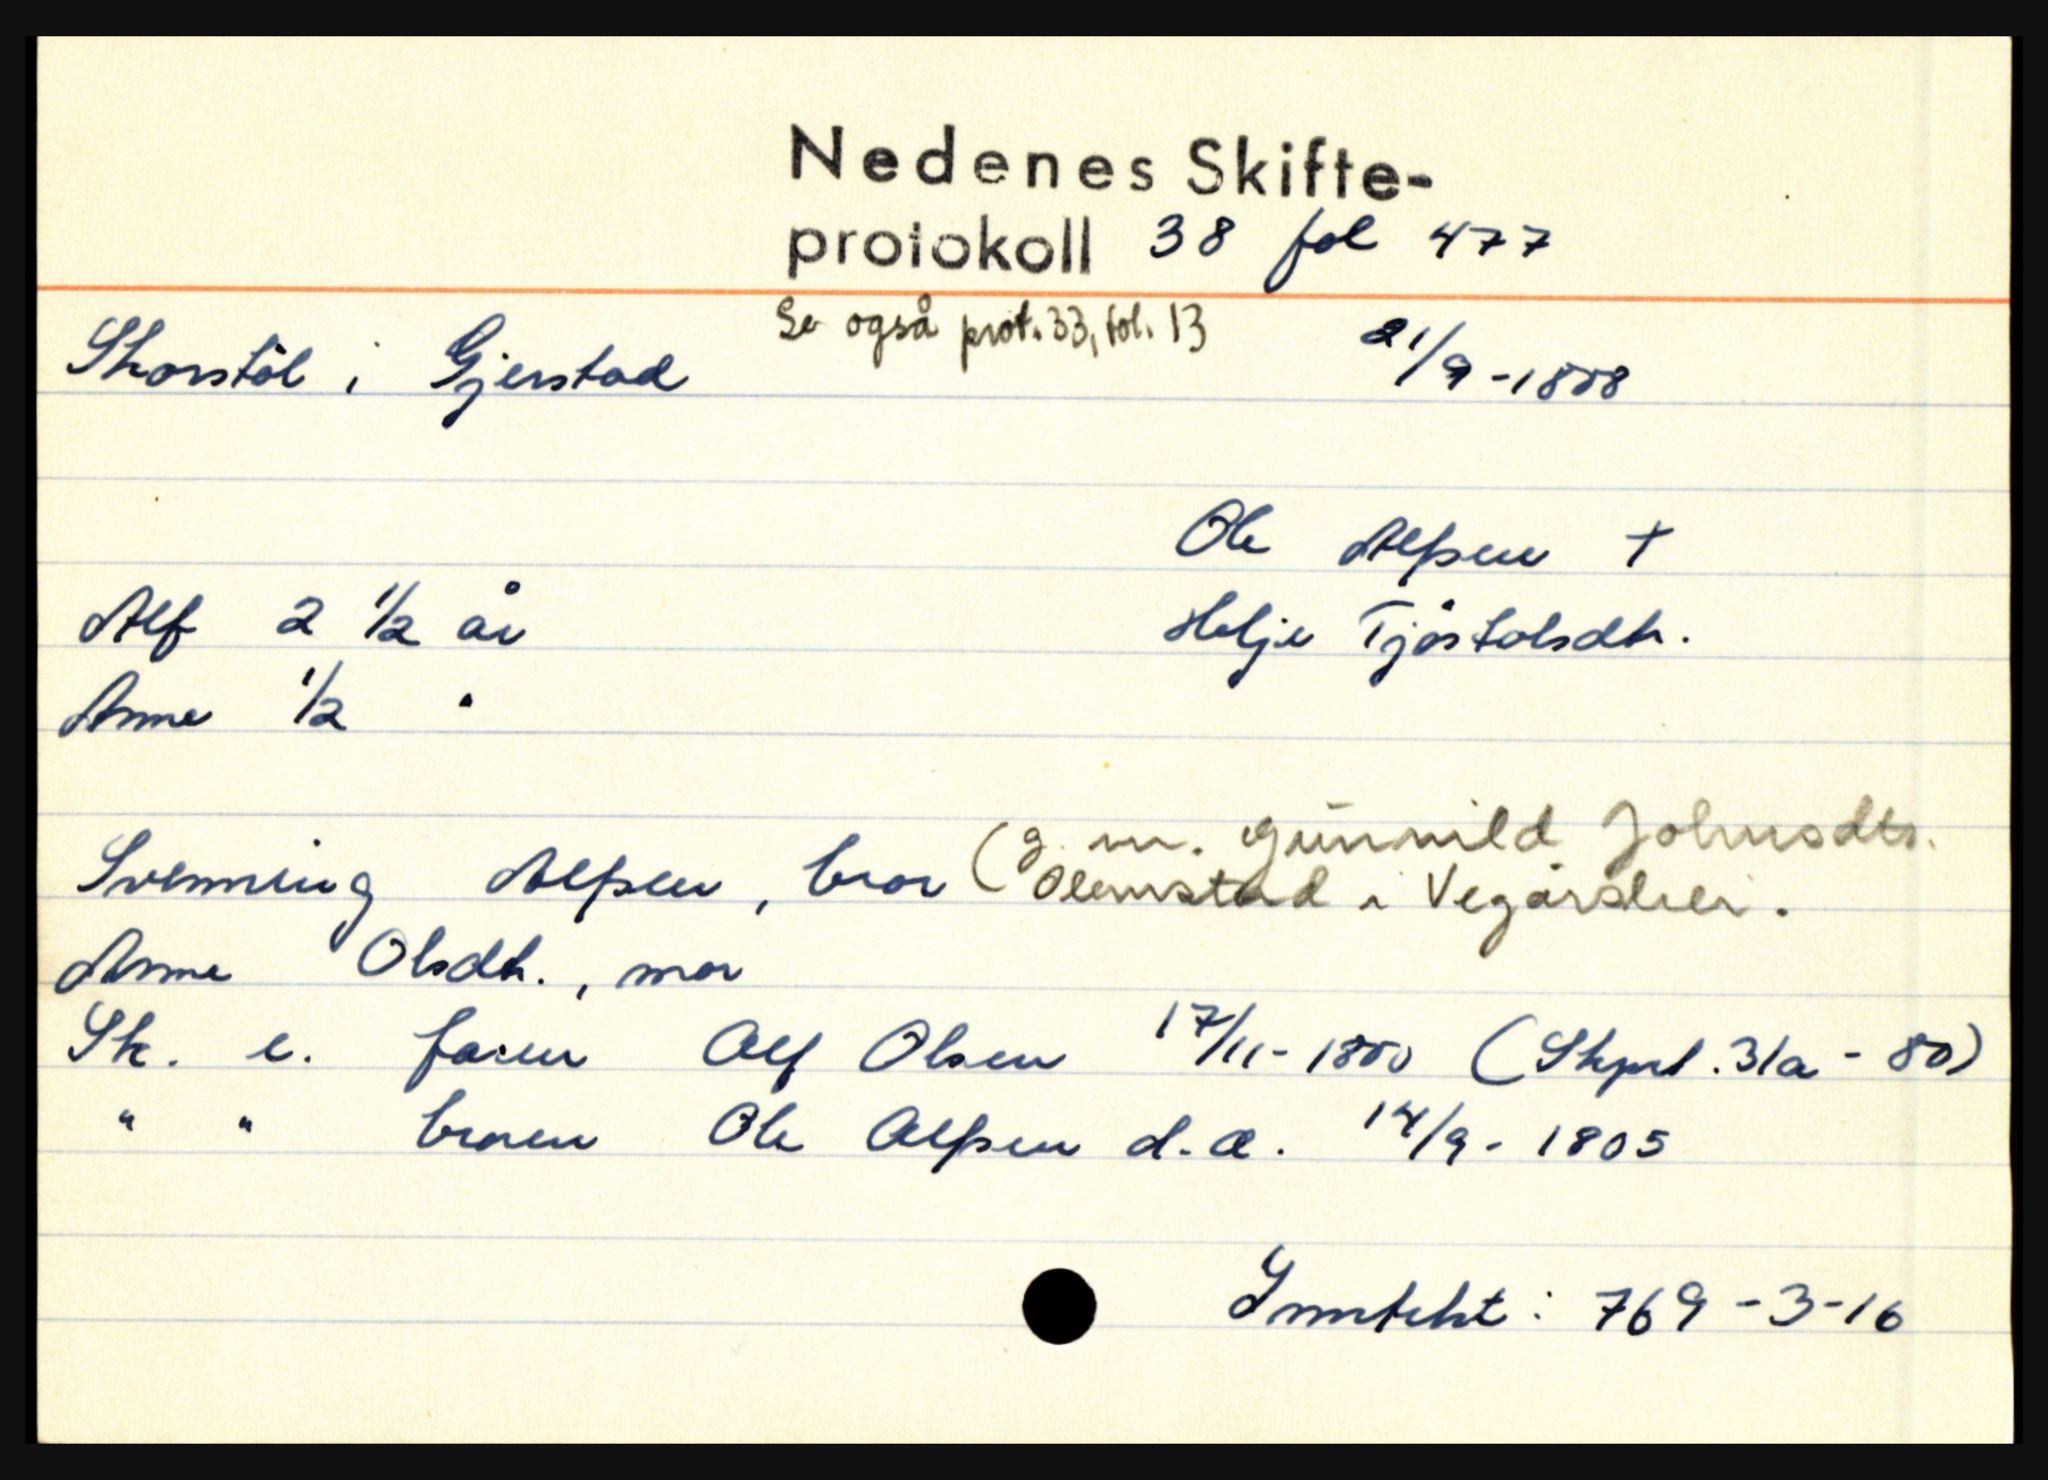 Nedenes Skifte-
protokoll 38 fol 477
Se også prot. 33, fol. 13
Skorstöl i Gjerstad 21/9 - 1808
Ole Alfsen +
Alf 2 1/2 år Helje Tjöstolsdtr.
Anne 1/2 "
Svenning Alfsen, bror (g. m. Gunnild Johnsdtr.
Olemstad i Vegårshei.
Anne Olsdtr., mor
Sk. e. faren Alf Olsen 17/11 - 1800 (Skprt. 31a - 80)
" " broren Ole Alfsen d. æ. 14/9 - 1805
Inntekt: 769 - 3 - 16